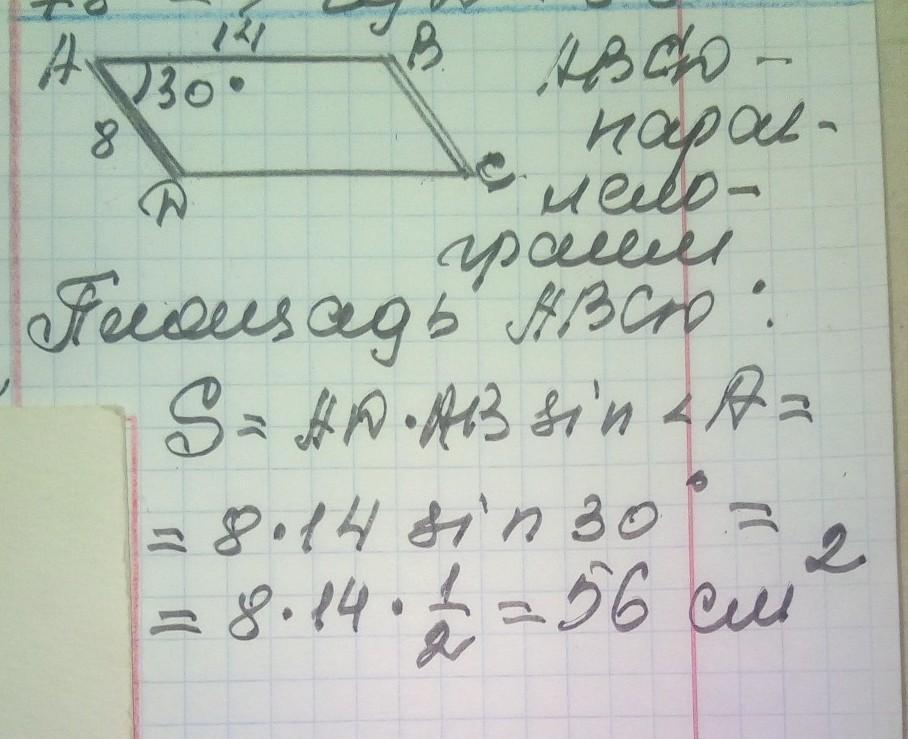 14
A
B
ABCD -
30°
парал-
8
лело-
D
C
грамм
Площадь ABCD :
S = AD · AB sin ∠A =
= 8 · 14 sin 30° =
= 8 · 14 · 1/2 = 56 см²